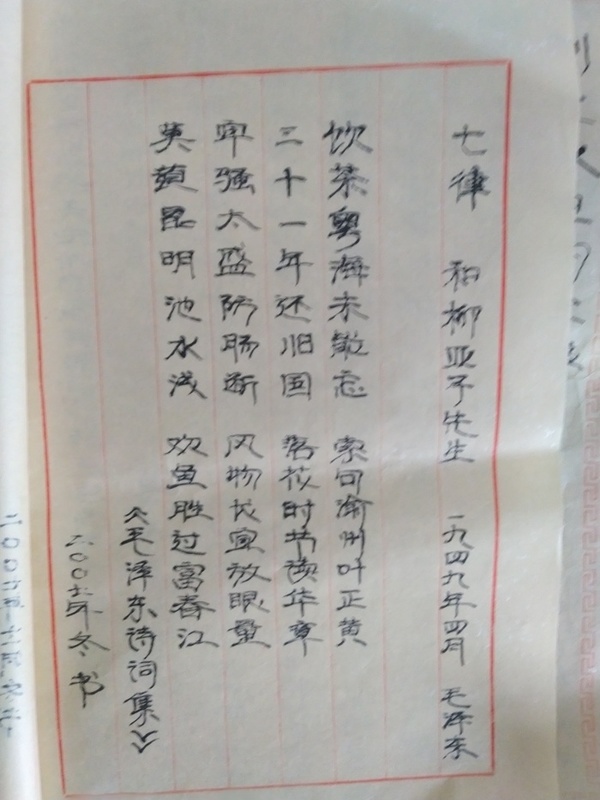 七律 和柳亚子先生 一九四九年四月 毛泽东
饮茶粤海未能忘 索句渝州叶正黄
三十一年还旧国 落花时节读华章
牢骚太盛防肠断 风物长宜放眼量
莫道昆明池水浅 观鱼胜过富春江
《毛泽东诗词集》
二〇〇六年冬书